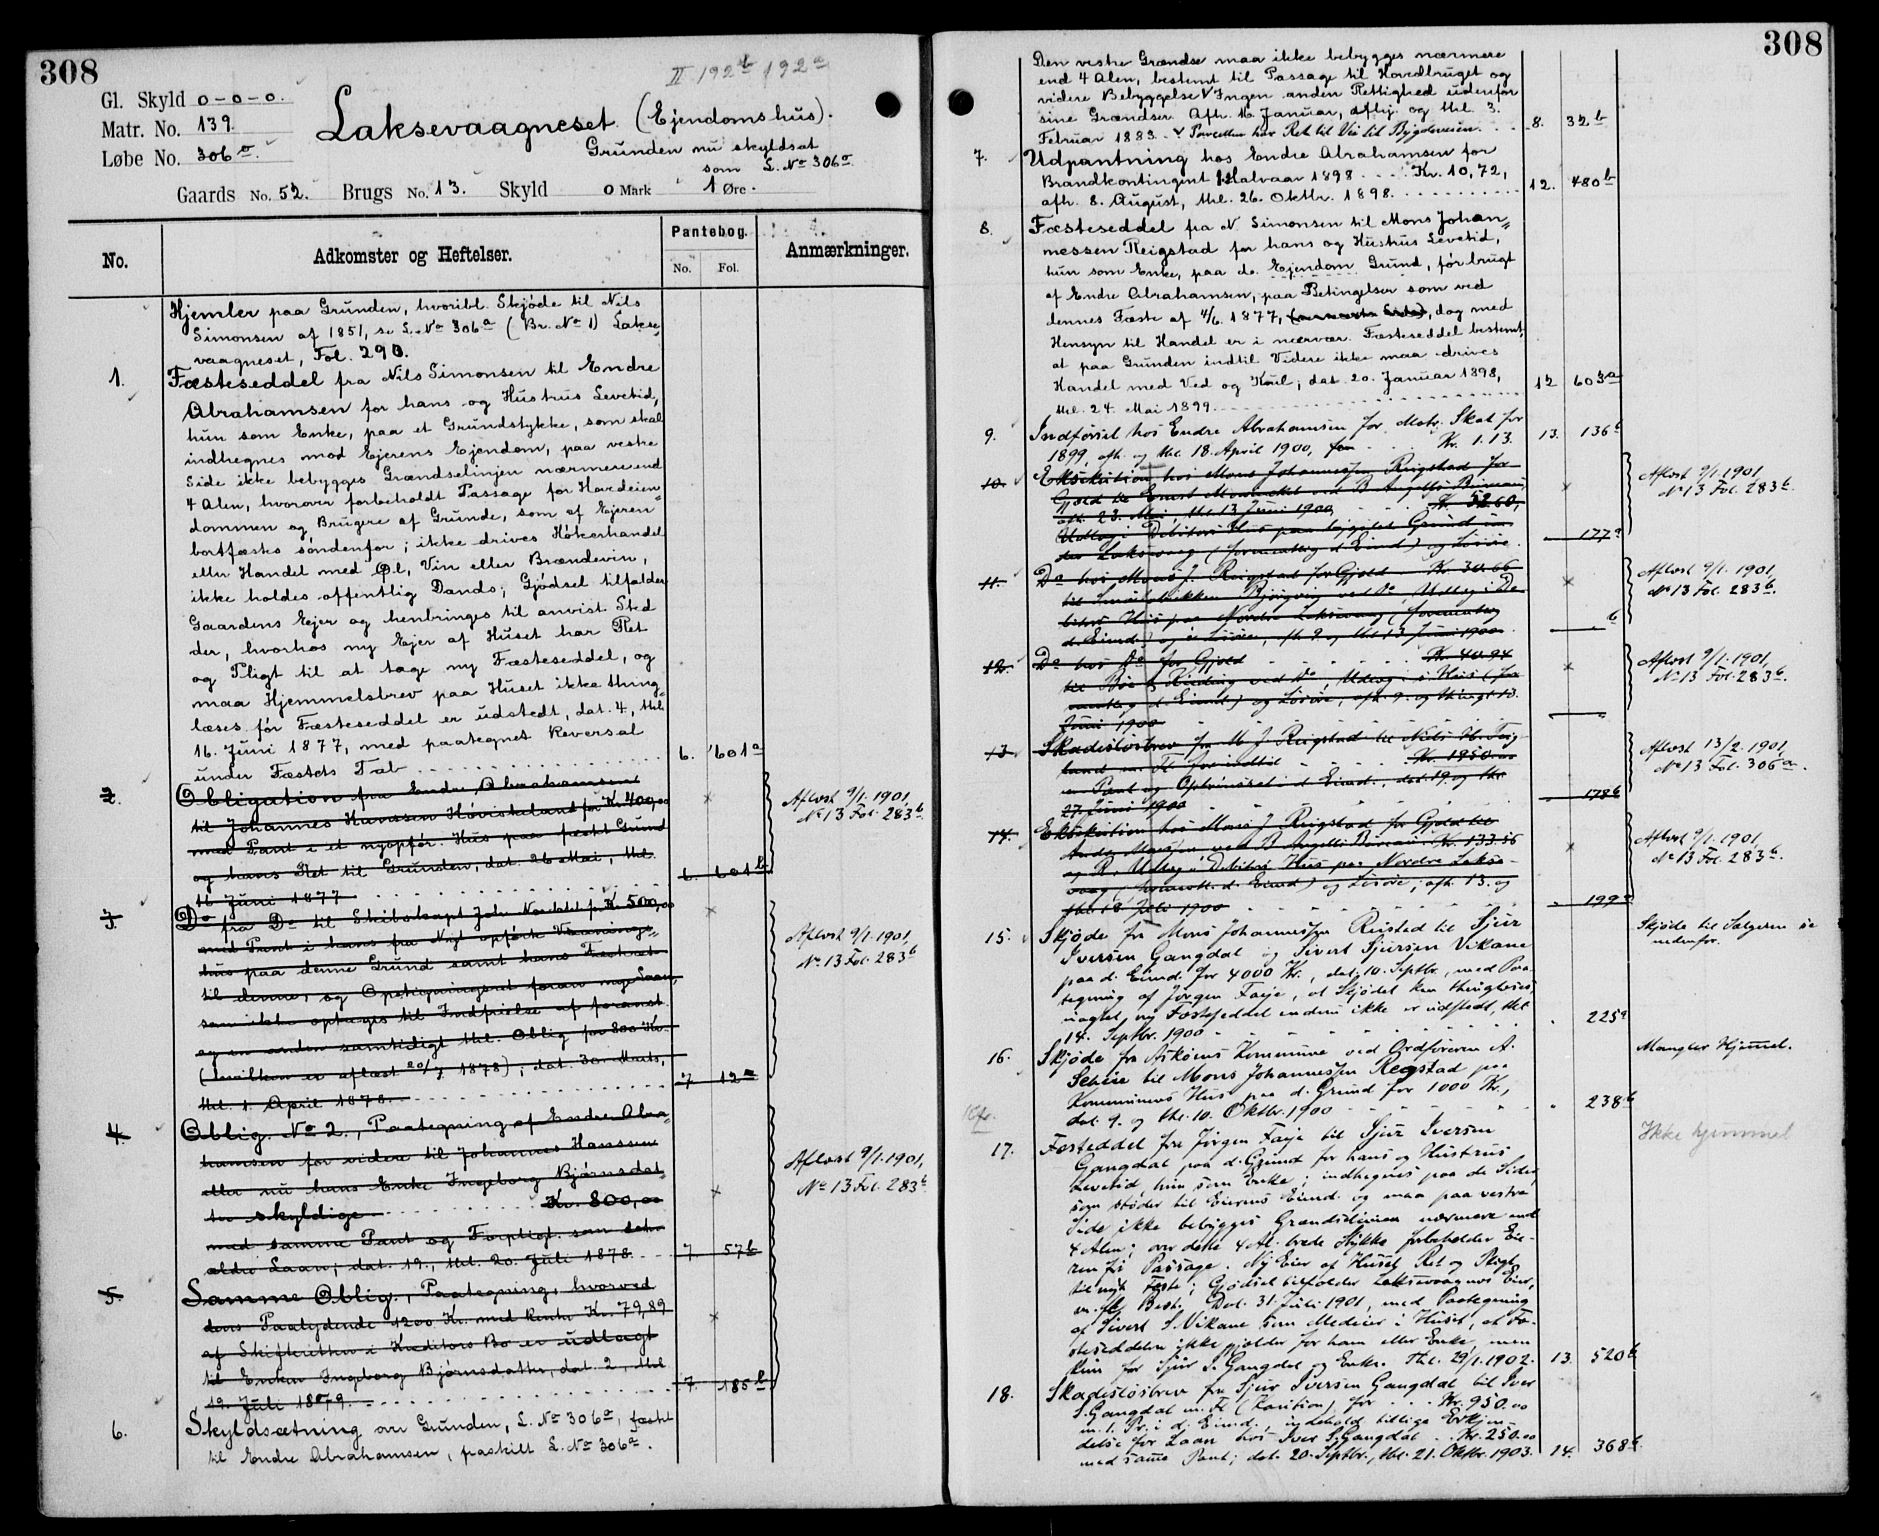 308
II 192b 192a
Gl. Skyld 0-0-0.
Matr. No. 139.
Løbe No. 306o.
Laksevaagneset (Ejendomshus).
Grunden nu skyldsat
som L. No 306o
Gaards No. 52. Brugs No. 13. Skyld 0 Mark 1 Øre.
No. Adkomster og Heftelser. Pantebog. No. Fol. Anmærkninger.
Hjemler paa Grunden, hvoribl. Skjøde til Nils
Simonsen af 1851, se L. No 306a (Br. No 1) Lakse-
vaagneset, Fol. 290.
1. Fæsteseddel fra Nils Simonsen til Endre
Abrahamsen for hans og Hustrus Levetid,
hun som Enke, paa et Grundstykke, som skal
indhegnes mod Ejerens Ejendom, paa vestre
Side ikke bebygges Grændselinjen nærmere end
4 Alen, hvorover forbeholdt Passage for Hovdeien-
dommen og Brugere af Grunde, som af Ejeren
bortfæstes søndenfor; ikke drives Høkerhandel
eller Handel med Øl, Vin eller Brændevin,
ikke holdes offentlig Dands; Gjødsel tilfalder
Gaardens Ejer og henbringes til anvist Sted
der, hvorhos ny Ejer af Huset har Ret
og Pligt til at tage ny Fæsteseddel, og
maa Hjemmelsbrev paa Huset ikke thing-
læses før Fæsteseddel er udstedt, dat. 4, thl.
16. Juni 1877, med paategnet Reversal
under Fæstets Tab 6. 601a
2. Obligation fra Endre Abrahamsen
til Johannes Hanssen Høviskeland for Kr. 400,00
med Pant i et nyopfør. Hus paa fæstet Grund
og hans Ret til Grunden, dat. 26 Mai, thl.
16 Juni 1877 6. 601b
Aflæst 9/1. 1901,
No 13 Fol. 283b.
3. Do fra Do til Skibskapt. Joh. for Kr. 500,00
med Pant i hans fra Nyt opførte Vaanings-
hus paa denne Grund samt hans Fæsteret
til denne, og Opstigningsret foran nye Laan,
som ikke optages til Indfrielse af foranst.
og en anden samtidigt thl. Oblig. for 800 Kr.
(hvilken er aflæst 20/7 1878); dat. 30. Marts,
thl. 1. April 1878. 7 12a
Aflæst 9/1. 1901,
No 13 Fol. 283b
4. Oblig. No 2., Paategning af Endre Abra-
hamsen for videre til Johannes Hanssen
eller nu hans Enke Ingeborg Bjørnsdat-
ter skyldige Kr. 800,00
med samme Pant og Forpligt. som det
ældre Laan; dat. 19., thl. 20. Juli 1878. 7. 57b
Aflæst 9/1. 1901,
No 13 Fol. 283b
5. Samme Oblig., Paategning, hvorved
dens Paalydende 1200 Kr. med Renter Kr. 79,89
af Skifteretten i Kreditors Bo er udlagt
til Enken Ingeborg Bjørnsdatter, dat. 2, thl.
19. Juli 1879. 7. 185b
6. Skyldsætning over Grunden, L. No 306o, fæstet
til Endre Abrahamsen, fraskilt L. No 306a.
308
Den vestre Grændse maa ikke bebygges nærmere
end 4 Alen, bestemt til Passage til Hovedbruget og
videre Bebyggelse V Ingen anden Rettighed udenfor
sine Grændser. Afh. 16. Januar, afhj. og thl. 3.
Februar 1883. V Parcellen har Ret til Vei til Bygdeveien. 8. 32b
7. Udpantning hos Endre Abrahamsen for
Brandkontingent 1. Halvaar 1898 Kr. 10,72,
afh. 8. August, thl. 26. Oktbr. 1898. 12. 480b
8. Fæsteseddel fra N. Simonsen til Mons Johan-
nessen Reigstad for hans og Hustrus Levetid,
hun som Enke, paa de. Ejendom Grund, før brugt
af Endre Abrahamsen, paa Betingelser som ved
dennes Fæste af 4/6. 1877, dog med
Hensyn til Handel er i nærvær. Fæsteseddel bestemt,
at paa Grunden indtil Videre ikke maa drives
Handel med Ved og Kul; dat. 20. Januar 1898,
thl. 24. Mai 1899. 12 603a
9. Indførsel hos Endre Abrahamsen for Matr. Skat for
1899, afh. og thl. 18. April 1900, Kr. 1.13. 13. 136b
10. Eksekution hos Mons Johannessen Reigstad for
Gjæld til Ernst ved B. Angells Bureau,
afh. 23. Mai, thl. 13 Juni 1900 Kr. 52.60,
Udlæg i Debitors Hus paa bygslet Grund un-
der Laksevaag (formentlig d. Eiend.) og Løsøre. 177a
Aflæst 9/1. 1901,
No 13 Fol. 283b.
11. Do hos Mons J. Reigstad for Gjæld Kr. 30.66
til Bjørgvin ved Do, Udlæg i De-
bitors Hus paa Nordre Laksevaag (formentlig
d. Eiend.) og i Løsøre, afh. 9. og thl. 13 Juni 1900 b
Aflæst 9/1. 1901,
No 13 Fol. 283b.
12. Do hos Do for Gjæld Kr. 40.94
til ved Do, Udlæg i s. Hus (for-
mentlig d. Eiend.) og Løsøre, afh. 9. og thinglæst 13.
Juni 1900
Aflæst 9/1. 1901,
No 13 Fol. 283b.
13. Skadesløsbrev fra M. J. Reigstad til Niels
m. Fl. for indtil Kr. 1950.00
m. Pant og Opt. i d. Eiend., dat. 19. og thl.
27 Juni 1900 178b
Aflæst 13/2. 1901,
No 13 Fol. 306a.
14. Eksekution hos Mons J. Reigstad for Gjæld til
ved B. Angells Bureau Kr. 133.56
og R., Udlæg i Debitors Hus paa Nordre Lakse-
vaag (forment. d. Eiend.) og Løsøre; afh. 13. og
thl. 18 Juli 1900 199a
Aflæst 9/1. 1901,
No 13 Fol. 283b.
15. Skjøde fra Mons Johannessen Reistad til Sjur
Iversen Gangdal og Sivert Sjursen Vikane
paa d. Eiend. for 4000 Kr., dat. 10. Septbr., med Paa-
tegning af Jørgen Faye, at Skjødet kan thinglæses
uagtet ny Fæsteseddel endnu ikke er udstedt, thl.
14. Septbr. 1900 225a
Skjøde til Sælgeren se
nedenfor.
16. Skjøde fra Askøens Kommune ved Ordføreren A.
til Mons Johannessen Regstad paa
Kommunens Hus paa d. Grund for 1000 Kr.,
dat. 9. og thl. 10. Oktbr. 1900 238b
Mangler Hjemmel.
17. Fæsteddel fra Jørgen Faye til Sjur Iversen
Gangdal paa d. Grund for hans og Hustrus
Levetid, hun som Enke; indhegnes paa de Sider,
som støder til Eierens Eiend. og maa paa vestre
Side ikke bebygges Grændselinien nærmere end
4 Alen; over dette 4 Al. brede Stykke forbeholder Eie-
ren fri Passage. Ny Eier af Huset Ret og Pligt
til nyt Fæste; Gjødsel tilfalder Laksevaagnes Eier,
m. fl. Best. Dat. 31. Juli 1901, med Paategning
af Sivert S. Vikane som Medeier i Huset, at Fæ-
steseddelen ikke gjælder for ham eller Enke, men
kun for Sjur I. Gangdal og Enke. Thl. 29/1. 1902. 13. 520b
Ikke hjemmel
18. Skadesløsbrev fra Sjur Iversen Gangdal til Iver
S. Gangdal m. Fl. (Kaution) for Kr. 950.00
m. 1. Pr. i d. Eiend., indehold. tillige Erkjen-
delse for Laan hos Iver S. Gangdal Kr. 250.00
med samme Pant; dat. 20. Septbr., thl. 21. Oktbr. 1903. 14. 368b